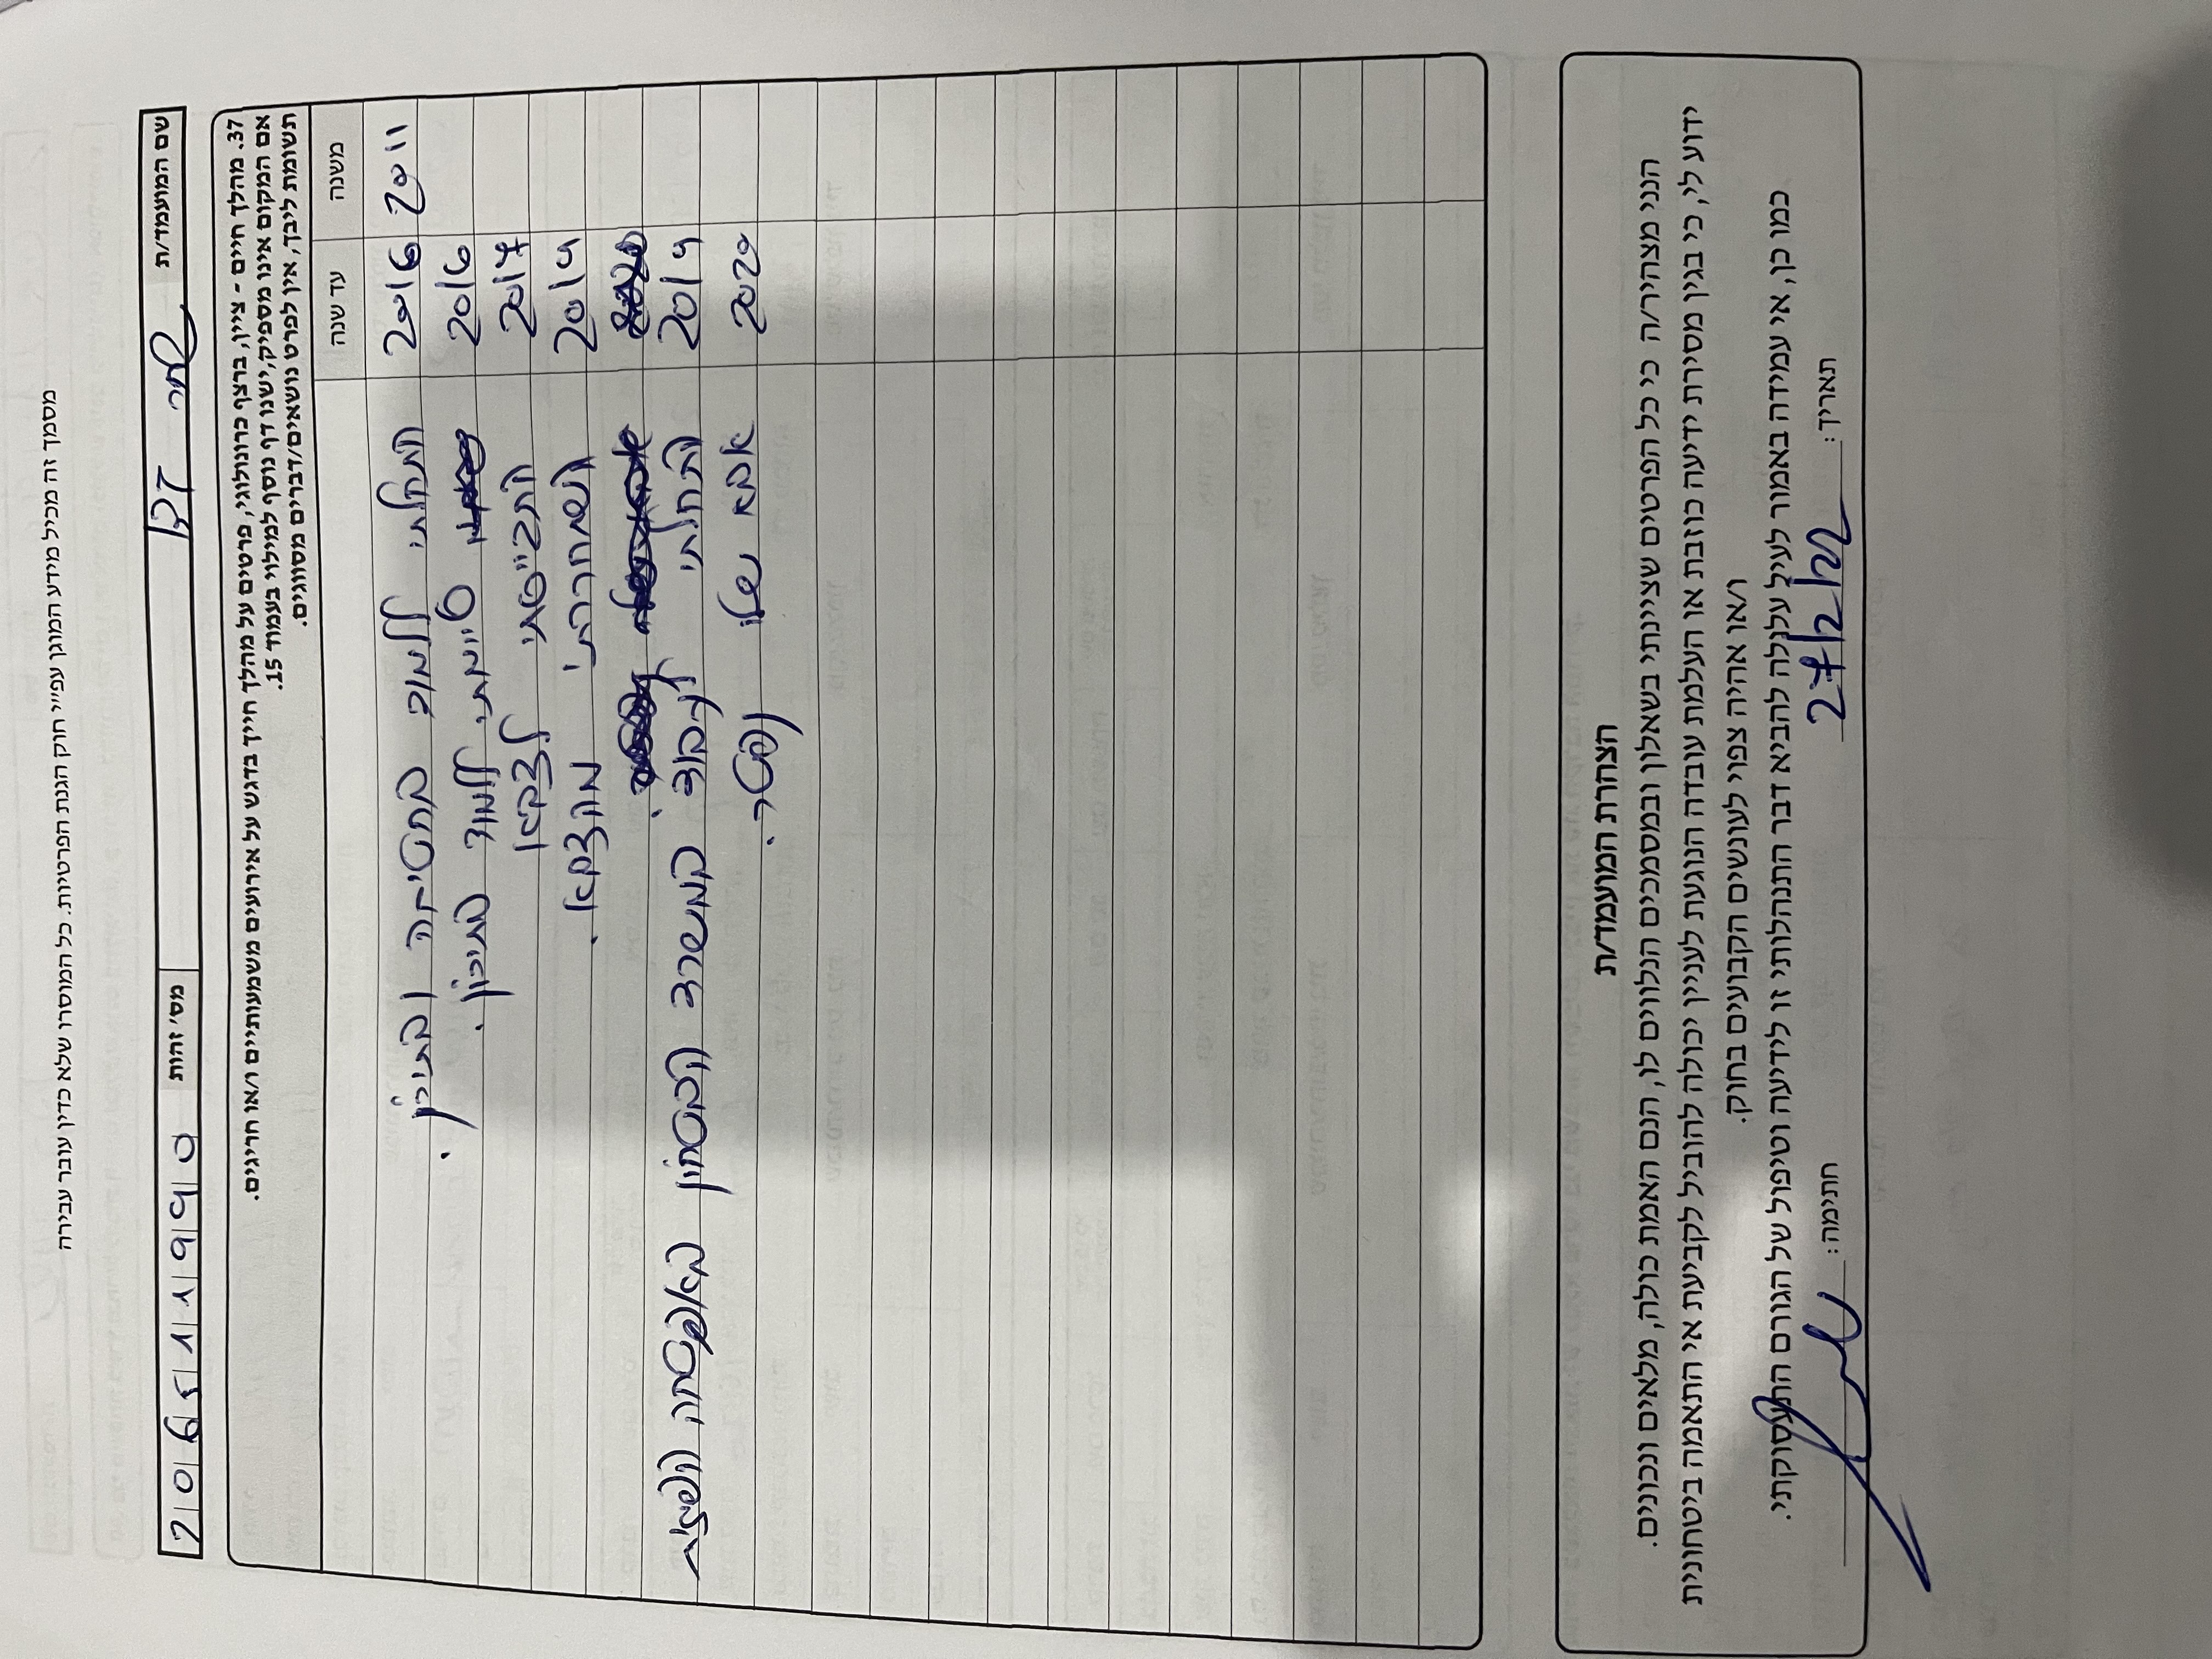 מסמך זה מכיל מידע המוגן עפ״י חוק הגנת הפרטיות. כל המוסרו שלא כדין עובר עבירה
שם המועמד/ת
מס׳ זהות 206511990
37. מהלך חיים - ציין, ברצף כרונולוגי, פרטים על מהלך חייך בדגש על אירועים משמעותיים ו/או חריגים.
אם המקום אינו מספיק, ישנו דף נוסף למילוי בעמוד 15.
תשומת ליבך, אין לפרט נושאים/דברים מסווגים.
משנה עד שנה
2011 2016 התחלתי ללמוד בחטיבה ובתיכון.
2016 סיימתי ללמוד בתיכון.
2017 התגייסתי לצבא
2019 השתחררתי מהצבא.
2019 התחלתי לעבוד במשרד הבטחון באבטחה
2020 אמא שלי נפטרה.
הצהרת המועמד/ת
הנני מצהיר/ה כי כל הפרטים שציינתי בשאלון ובמסמכים הנלווים לו, הנם האמת כולה, מלאים ונכונים.
ידוע לי, כי בגין מסירת ידיעה כוזבת או העלמת עובדה הנוגעת לעניין יכולה להוביל לקביעת אי התאמה ביטחונית
ו/או אהיה צפוי לעונשים הקבועים בחוק.
כמו כן, אי עמידה באמור לעיל עלולה להביא דבר התנהלותי זו לידיעה וטיפול של הגורם התעסוקתי.
תאריך: 27/2/22 חתימה: